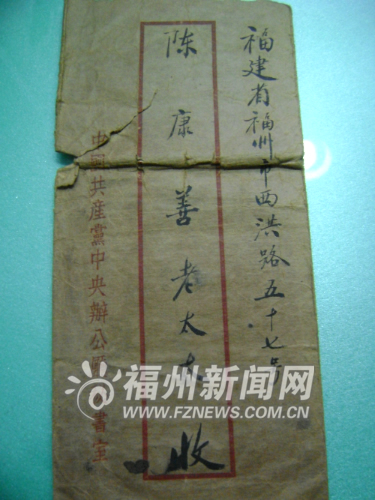 福建省福州市西洪路五十七号
陈康善老太太收
中國共産黨中央辦公厛 書室
福州新闻网
WWW.FZNEWS.COM.CN